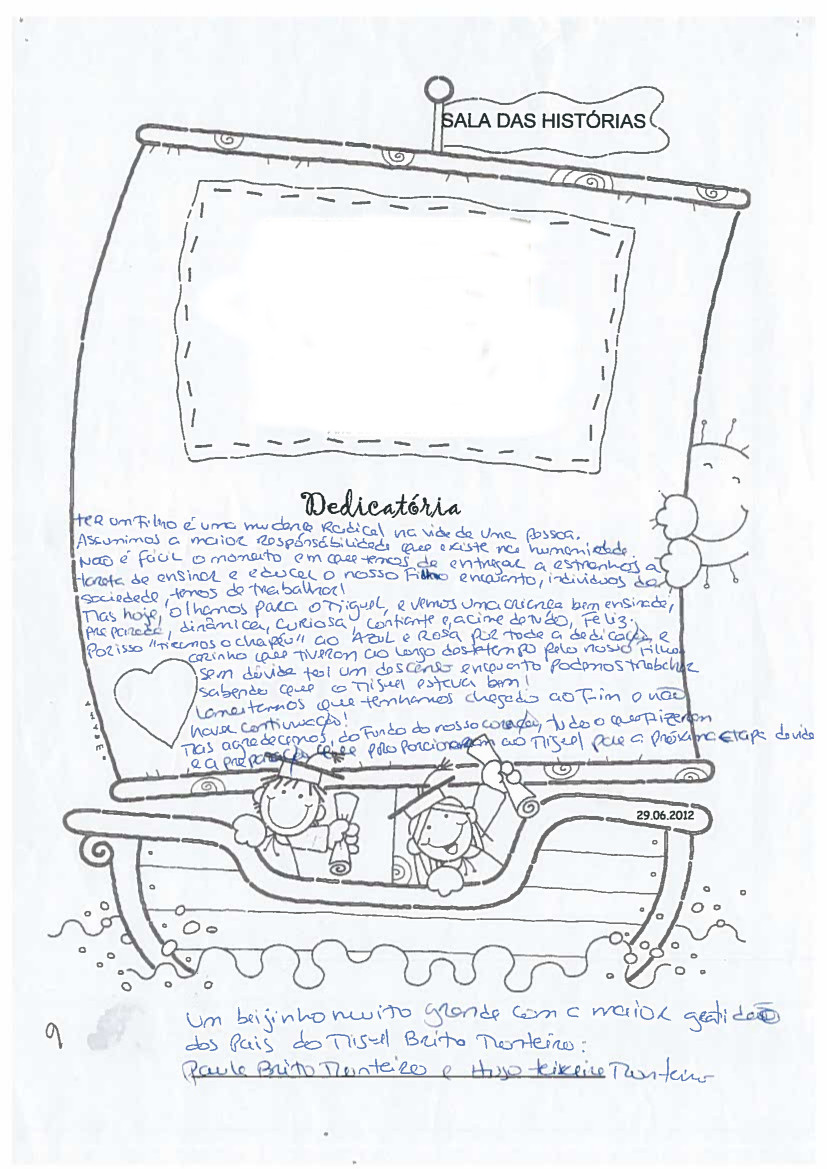 SALA DAS HISTÓRIAS
Dedicatória
ter um Filho é uma mudança Radical na vida de uma pessoa.
Assumimos a maior Responsabilidade que existe na humanidade.
Não é fácil o momento em que temos de entregar a estranhos a
tarefa de ensinar e educar o nosso Filho enquanto, individuos da
sociedade, temos de trabalhar!
Mas hoje, olhamos para o Miguel, e vemos uma criança bem ensinada,
preparada, dinâmica, curiosa, confiante e, acima de tudo, Feliz.
Por isso "tiramos o chapéu" ao Azul e Rosa por toda a dedicação e
carinho que tiveram ao longo deste tempo pelo nosso Filho
Sem dúvida foi um descanso enquanto podemos trabalhar
sabendo que o Miguel estava bem!
Lamentamos que tenhamos chegado ao Fim e não
haver continuação!
Mas agradecemos, do Fundo do nosso coração, tudo o que Fizeram
e a preparação que proporcionaram ao Miguel para a próxima etapa da vida
29.06.2012
Um beijinho muito grande com a maior gratidão
dos Pais do Miguel Brito Monteiro:
Paula Brito Monteiro e Hugo Teixeira Monteiro
9